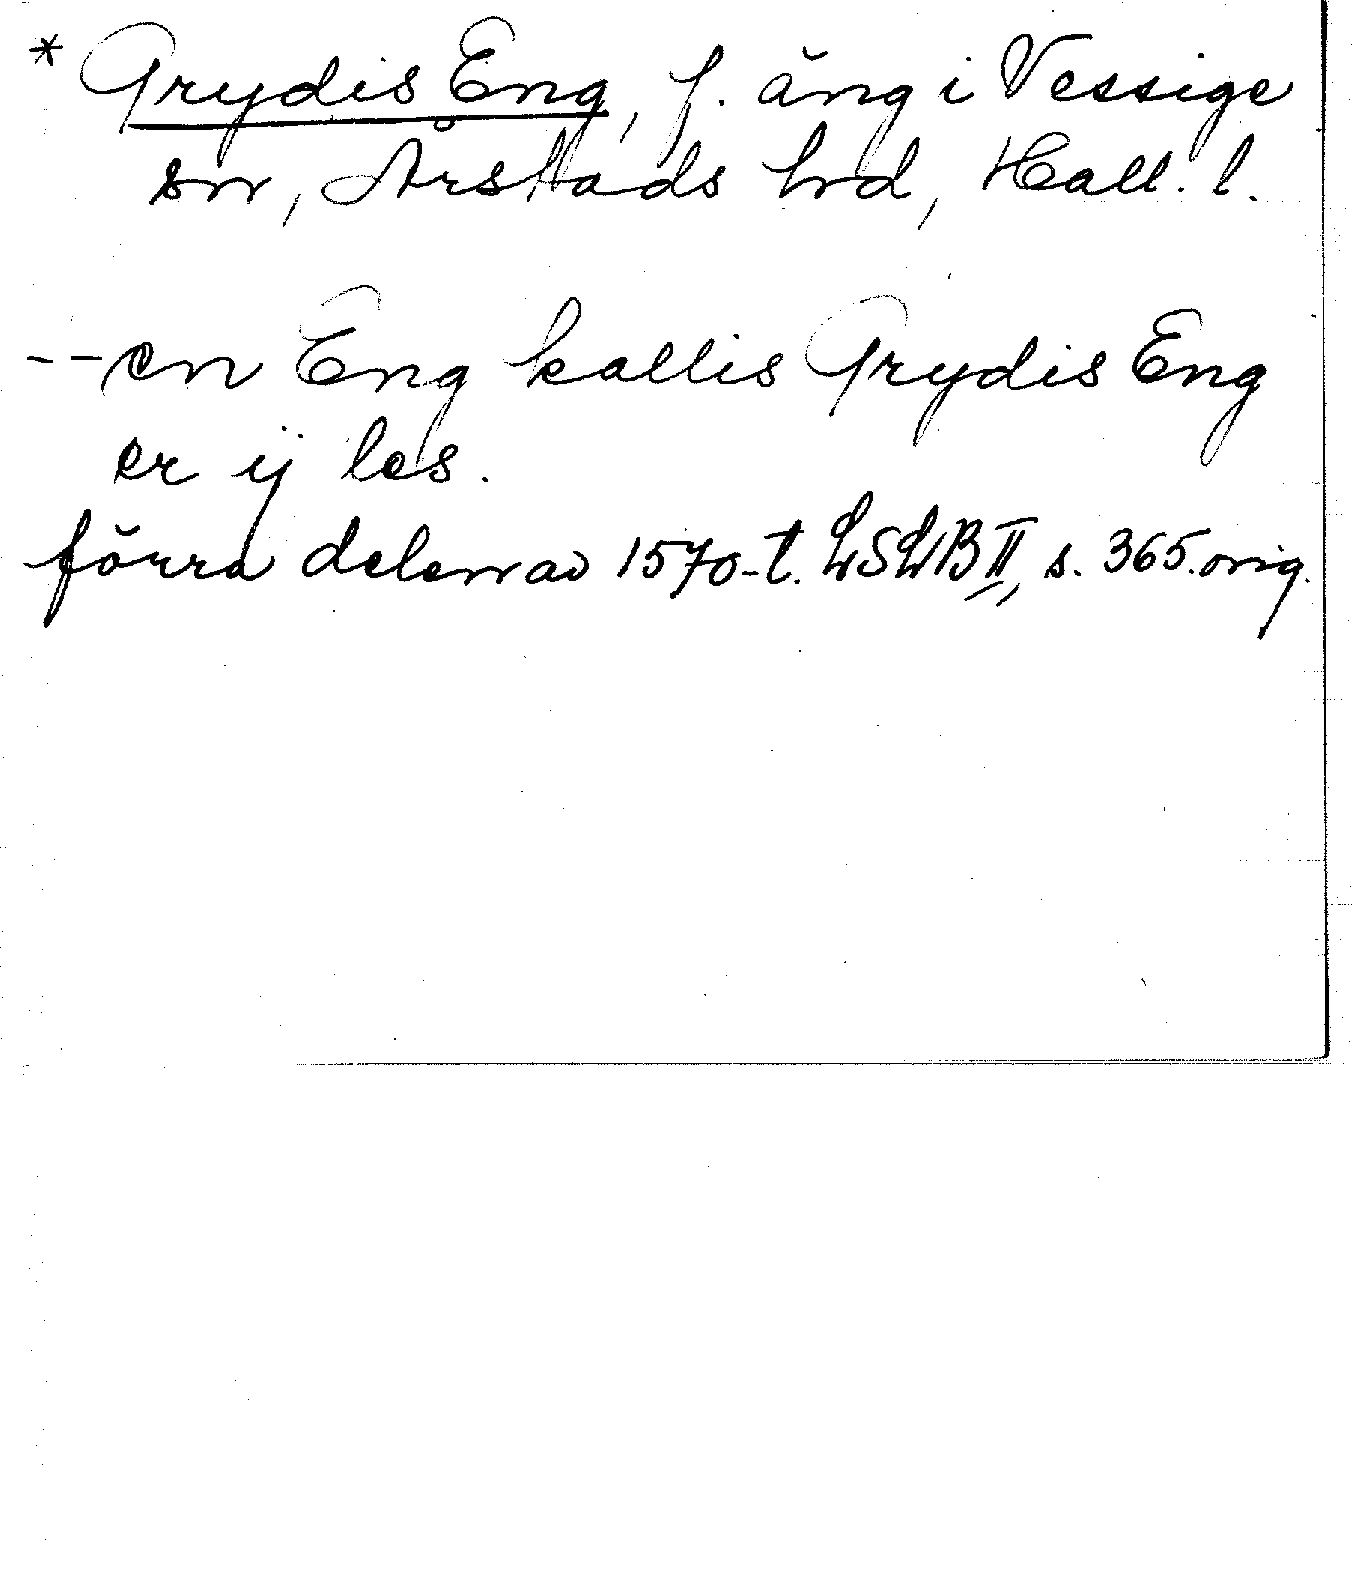 * Grydis Eng, f. äng i Vessige
sn, Årstads hrd, Hall. l.
-- en Eng kallis Grydis Eng
er ij les.
förra delen av 1570-t. LSLB II, s. 365. orig.